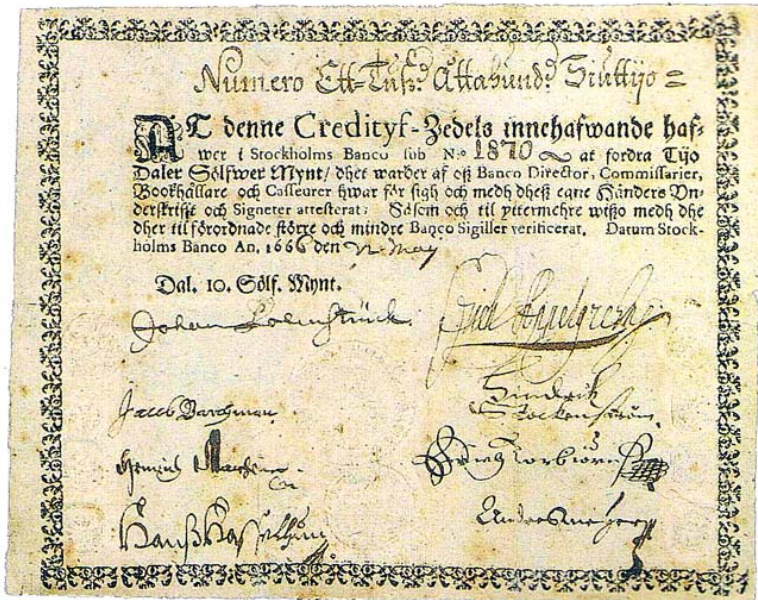 Numero Ett-Tuß. Attahund. Siuttijo =
AT denne Credityf-Zedels innehafwande haf-
wer i Stockholms Banco sub N:o 1870 at fordra Tijo
Daler Sölfwer Mynt/ dhet warder af oß Banco Director, Commissarier,
Bookhållare och Casseurer hwar för sigh och medh dheß egne Händers Vn-
derskrifft och Signeter attesterat; Såsom och til yttermehre wißo medh dhe
dher til förordnade större och mindre Banco Sigiller verificerat. Datum Stock-
holms Banco An. 1666 den May
Dal. 10. Sölf. Mynt.
Johan Palmstruck.
Jacob
Hindrik
Stockenström.
Torbiörn